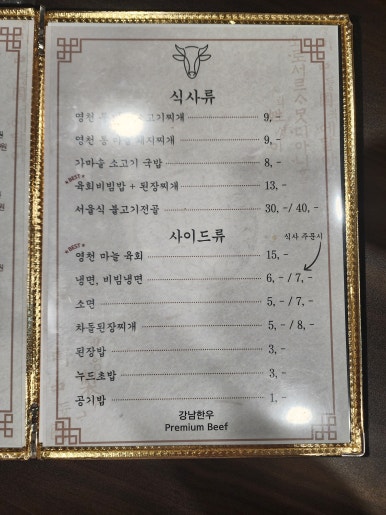 식사류
영천 소고기찌개 9,-
영천 찌개 9,-
가마솥 소고기 국밥 8,-
BEST
육회비빔밥 + 된장찌개 13,-
서울식 불고기전골 30,-/40,-
사이드류
식사 주문시
BEST
영천 마늘 육회 15,-
냉면, 비빔냉면 6,-/7,-
소면 5,-/7,-
차돌된장찌개 5,-/8,-
된장밥 3,-
누드초밥 3,-
공기밥 1,-
강남한우
Premium Beef